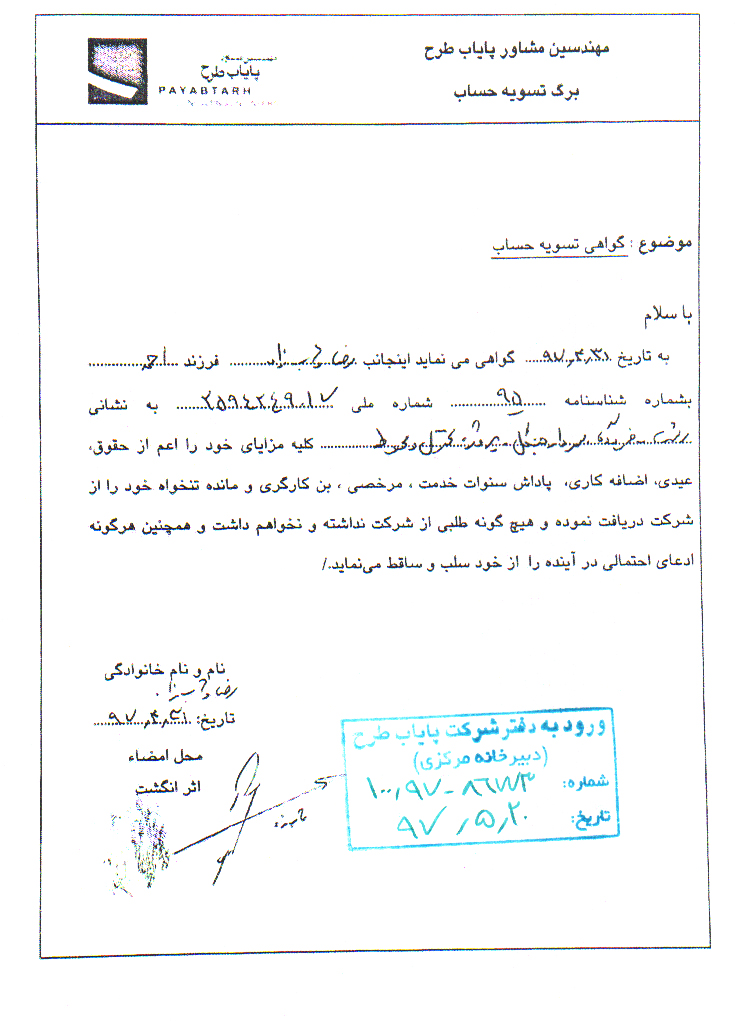 مهندسین مشاور پایاب طرح
برگ تسویه حساب
پایاب طرح
PAYABTARH
موضوع : گواهی تسویه حساب
با سلام
به تاریخ ۹۷,۴,۳۱ گواهی می نماید اینجانب رضا فرزند
بشماره شناسنامه ۹۵ شماره ملی ۲۵۹۴۲۴۹۰۱۷ به نشانی
رشت کلیه مزایای خود را اعم از حقوق،
عیدی، اضافه کاری، پاداش سنوات خدمت ، مرخصی ، بن کارگری و مانده تنخواه خود را از
شرکت دریافت نموده و هیچ گونه طلبی از شرکت نداشته و نخواهم داشت و همچنین هرگونه
ادعای احتمالی در آینده را از خود سلب و ساقط می‌نماید./
نام و نام خانوادگی
رضا
تاریخ: ۹۷,۴,۳۱
محل امضاء
اثر انگشت
ورود به دفتر شرکت پایاب طرح
(دبیرخانه مرکزی)
شماره: ۱۰۰,۹۷-۸۶۷۷۳
تاریخ: ۹۷,۵,۲۰